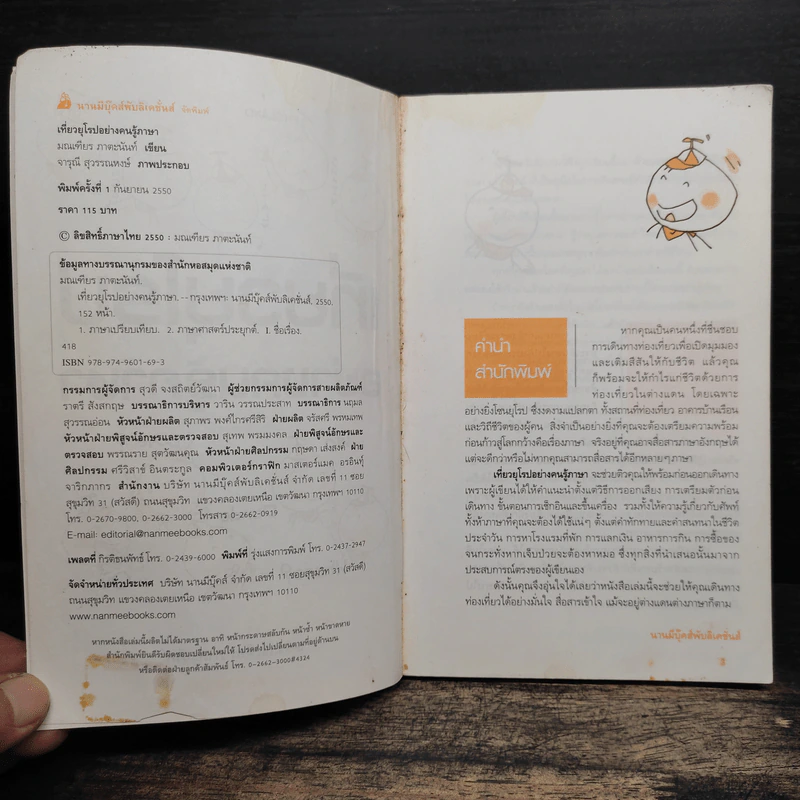 นานมีบุ๊คส์พับลิเคชั่นส์ จัดพิมพ์
เที่ยวยุโรปอย่างคนรู้ภาษา
มณเฑียร ภาตะนันท์ เขียน
จารุณี สุวรรณหงษ์ ภาพประกอบ
พิมพ์ครั้งที่ 1 กันยายน 2550
ราคา 115 บาท
© ลิขสิทธิ์ภาษาไทย 2550 : มณเฑียร ภาตะนันท์
ข้อมูลทางบรรณานุกรมของสำนักหอสมุดแห่งชาติ
มณเฑียร ภาตะนันท์.
เที่ยวยุโรปอย่างคนรู้ภาษา.--กรุงเทพฯ: นานมีบุ๊คส์พับลิเคชั่นส์. 2550.
152 หน้า.
1. ภาษาเปรียบเทียบ. 2. ภาษาศาสตร์ประยุกต์. I. ชื่อเรื่อง.
418
ISBN 978-974-9601-69-3
กรรมการผู้จัดการ สุวดี จงสถิตย์วัฒนา ผู้ช่วยกรรมการผู้จัดการสายผลิตภัณฑ์
ราตรี สังสกฤษ บรรณาธิการบริหาร วาริน วรรณประสาท บรรณาธิการ นฤมล
สุวรรณอ่อน หัวหน้าฝ่ายผลิต สุภาพร พงค์ไกรศรีสิริ ฝ่ายผลิต จริสศรี พรหมเทพ
หัวหน้าฝ่ายพิสูจน์อักษรและตรวจสอบ สุเทพ พรมมงคล ฝ่ายพิสูจน์อักษรและ
ตรวจสอบ พรรณราย สุตวัฒนคุณ หัวหน้าฝ่ายศิลปกรรม กฤษดา เส่งสงค์ ฝ่าย
ศิลปกรรม ศรีวิสาข์ อินตระกูล คอมพิวเตอร์กราฟิก มาสเตอร์แมค อรอินทุ์
จาริกภากร สำนักงาน บริษัท นานมีบุ๊คส์พับลิเคชั่นส์ จำกัด เลขที่ 11 ซอย
สุขุมวิท 31 (สวัสดี) ถนนสุขุมวิท แขวงคลองเตยเหนือ เขตวัฒนา กรุงเทพฯ 10110
โทร. 0-2670-9800, 0-2662-3000 โทรสาร 0-2662-0919
E-mail: editorial@nanmeebooks.com
เพลตที่ กิรติชนพัทธ์ โทร. 0-2439-6000 พิมพ์ที่ รุ่งแสงการพิมพ์ โทร. 0-2437-2947
จัดจำหน่ายทั่วประเทศ บริษัท นานมีบุ๊คส์ จำกัด เลขที่ 11 ซอยสุขุมวิท 31 (สวัสดี)
ถนนสุขุมวิท แขวงคลองเตยเหนือ เขตวัฒนา กรุงเทพฯ 10110
www.nanmeebooks.com
หากหนังสือเล่มนี้ผลิตไม่ได้มาตรฐาน อาทิ หน้ากระดาษสลับกัน หน้าซ้ำ หน้าขาดหาย
สำนักพิมพ์ยินดีรับผิดชอบเปลี่ยนใหม่ให้ โปรดส่งไปเปลี่ยนตามที่อยู่ด้านบน
หรือติดต่อฝ่ายลูกค้าสัมพันธ์ โทร. 0-2662-3000#4324
คำนำ
สำนักพิมพ์
หากคุณเป็นคนหนึ่งที่ชื่นชอบ
การเดินทางท่องเที่ยวเพื่อเปิดมุมมอง
และเติมสีสันให้กับชีวิต แล้วคุณ
ก็พร้อมจะให้กำไรแก่ชีวิตด้วยการ
ท่องเที่ยวในต่างแดน โดยเฉพาะ
อย่างยิ่งโซนยุโรป ซึ่งงดงามแปลกตา ทั้งสถานที่ท่องเที่ยว อาคารบ้านเรือน
และวิถีชีวิตของผู้คน สิ่งจำเป็นอย่างยิ่งที่คุณจะต้องเตรียมความพร้อม
ก่อนก้าวสู่โลกกว้างคือเรื่องภาษา จริงอยู่ที่คุณอาจสื่อสารภาษาอังกฤษได้
แต่จะดีกว่าหรือไม่หากคุณสามารถสื่อสารได้อีกหลายๆภาษา
เที่ยวยุโรปอย่างคนรู้ภาษา จะช่วยติวคุณให้พร้อมก่อนออกเดินทาง
เพราะผู้เขียนได้ให้คำแนะนำตั้งแต่วิธีการออกเสียง การเตรียมตัวก่อน
เดินทาง ขั้นตอนการเช็กอินและขึ้นเครื่อง รวมทั้งให้ความรู้เกี่ยวกับศัพท์
ทั้งห้าภาษาที่คุณจะต้องได้ใช้แน่ๆ ตั้งแต่คำทักทายและคำสนทนาในชีวิต
ประจำวัน การหาโรงแรมที่พัก การแลกเงิน อาหารการกิน การซื้อของ
จนกระทั่งหากเจ็บป่วยจะต้องหาหมอ ซึ่งทุกสิ่งที่นำเสนอนั้นมาจาก
ประสบการณ์ตรงของผู้เขียนเอง
ดังนั้นคุณจึงอุ่นใจได้เลยว่าหนังสือเล่มนี้จะช่วยให้คุณเดินทาง
ท่องเที่ยวได้อย่างมั่นใจ สื่อสารเข้าใจ แม้จะอยู่ต่างแดนต่างภาษาก็ตาม
นานมีบุ๊คส์พับลิเคชั่นส์
3